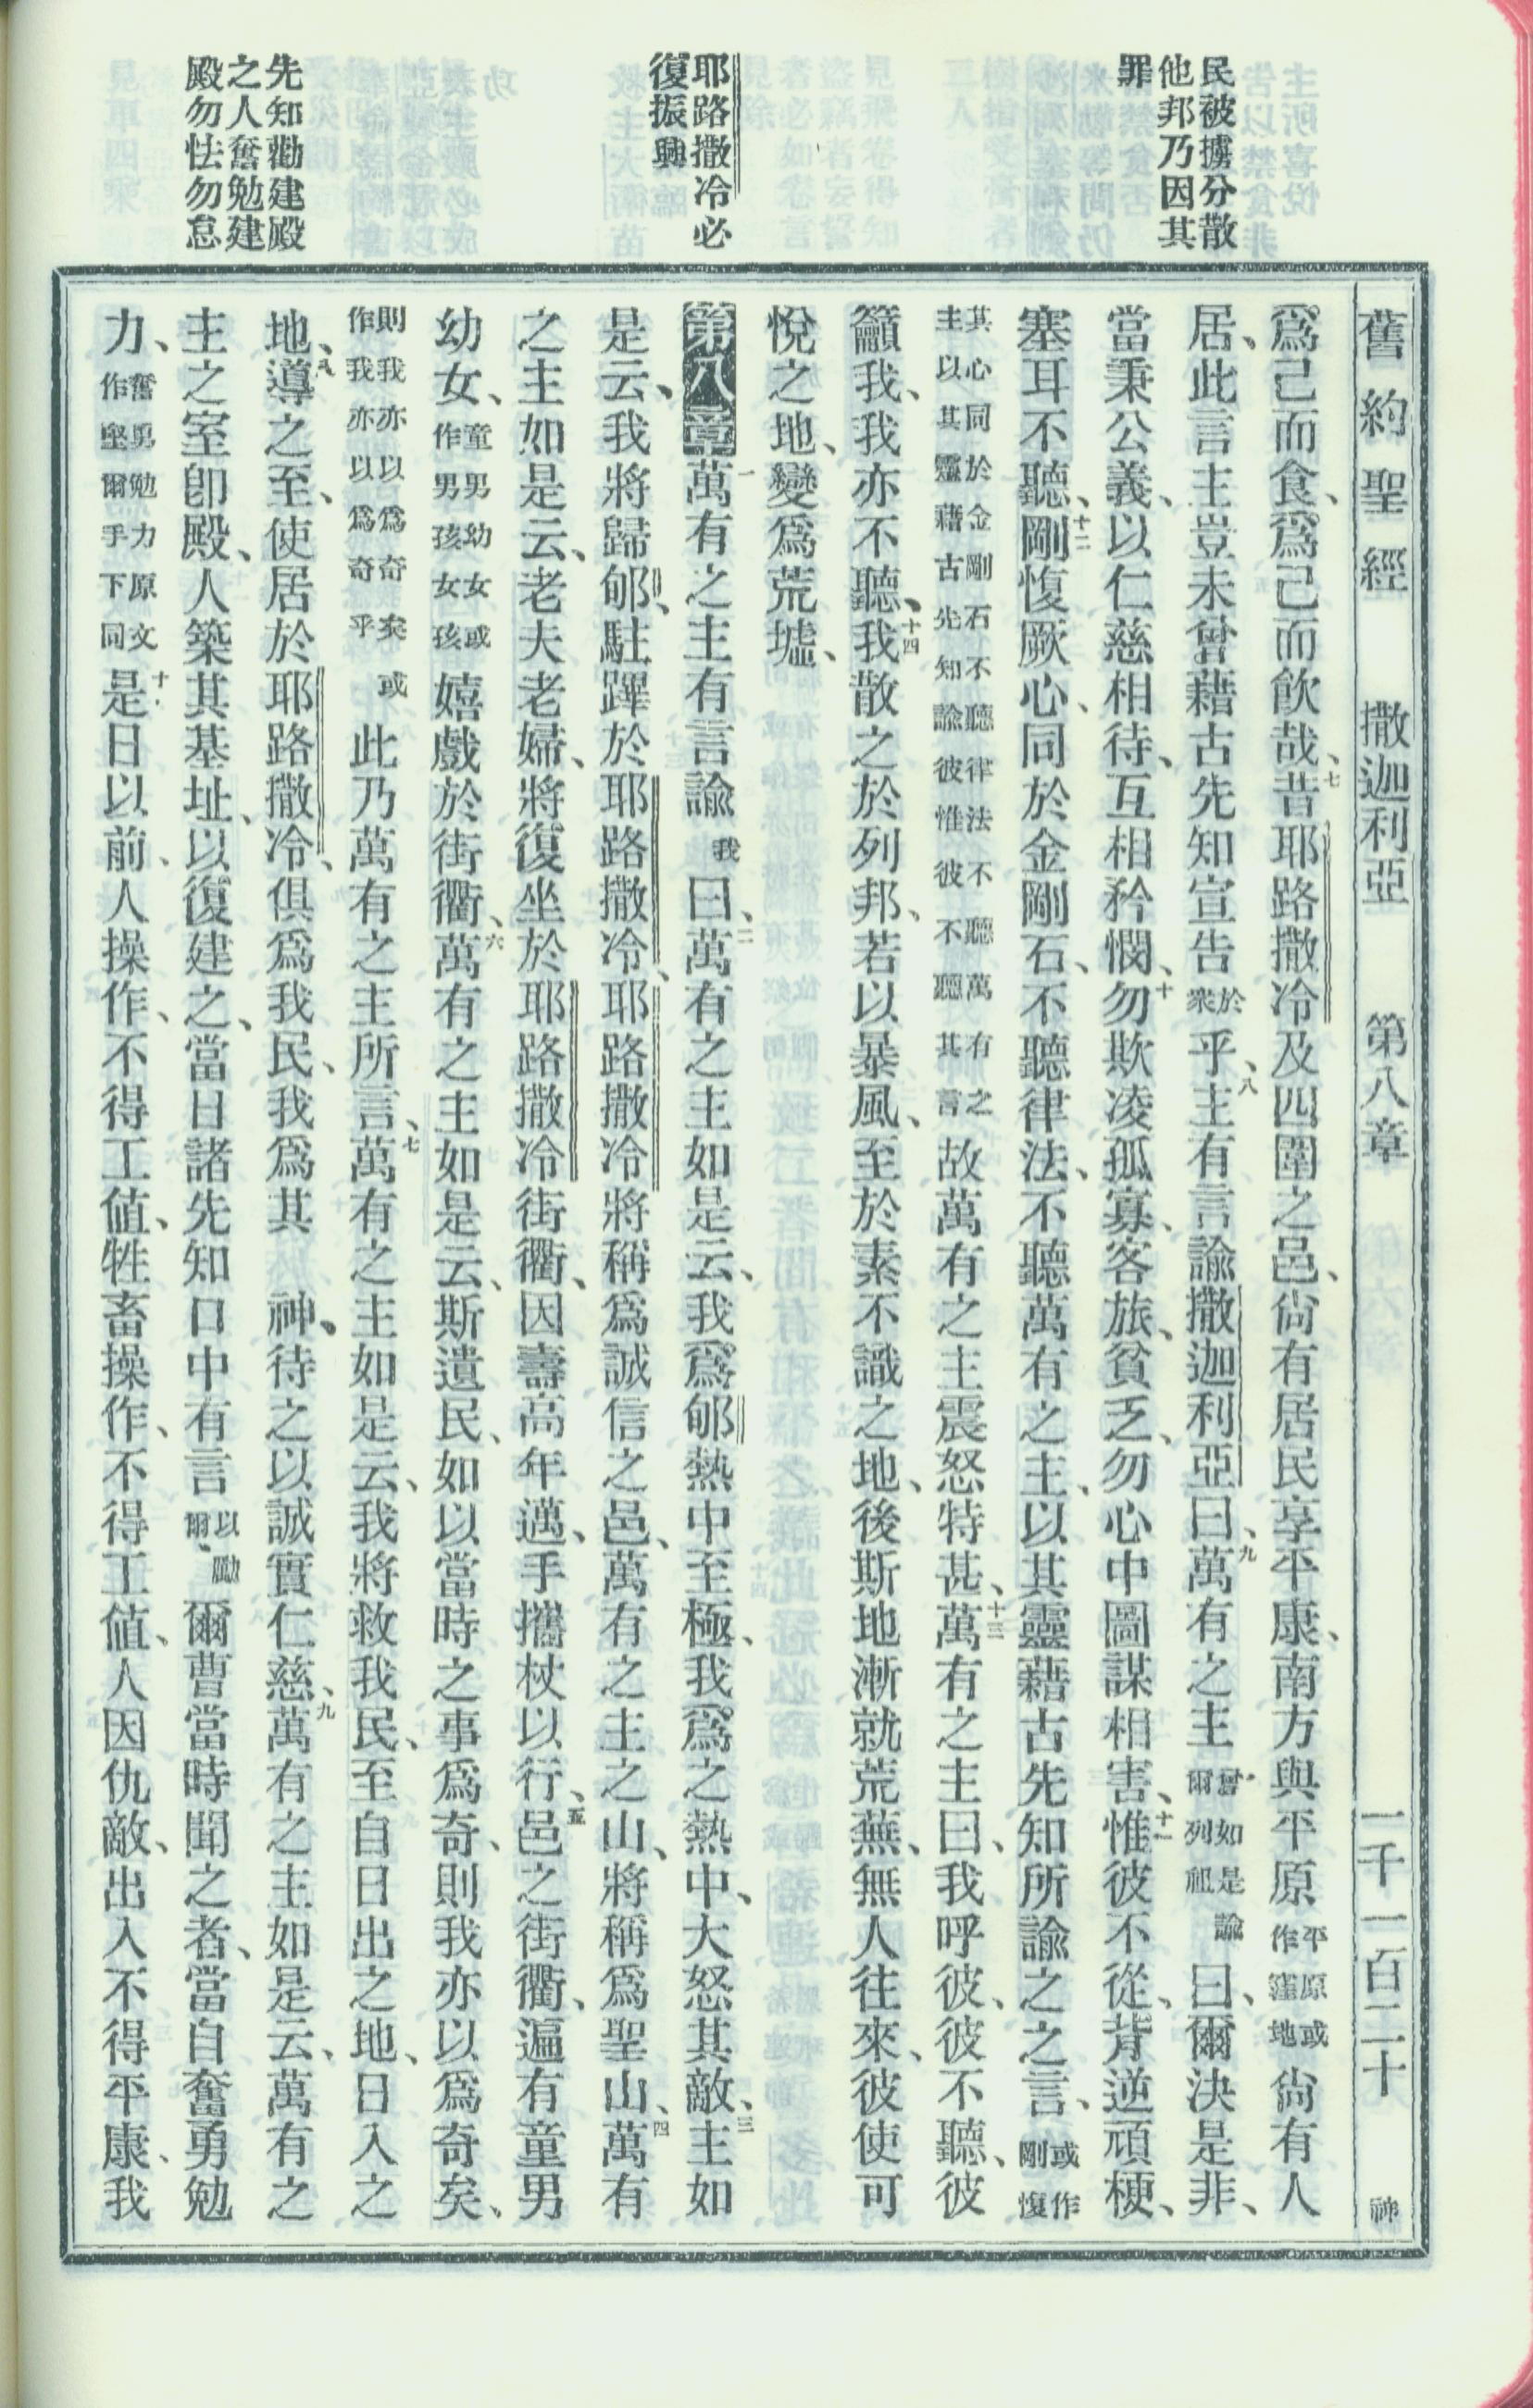 民被擄分散
他邦乃因其
罪
耶路撒冷必
復振興
先知勸建殿
之人奮勉建
殿勿怯勿怠
舊約聖經 撒迦利亞 第八章 一千一百二十 神
爲己而食、爲己而飲哉、七昔耶路撒冷及四圍之邑、尙有居民享平康、南方與平原平原或作窪地尙有人
居、此言主豈未曾藉古先知宣告於衆乎、八主有言諭撒迦利亞曰、九萬有之主曾如是諭爾列祖曰、爾決是非、
當秉公義、以仁慈相待、互相矜憫、十勿欺凌孤寡、客旅、貧乏、勿心中圖謀相害、十一惟彼不從、背逆頑梗、
塞耳不聽、十二剛愎厥心、同於金剛石、不聽律法、不聽萬有之主、以其靈藉古先知所諭之之言、或作剛愎
其心同於金剛石不聽律法不聽萬有之主以其靈藉古先知諭彼惟彼不聽其言故萬有之主震怒特甚、十三萬有之主曰、我呼彼、彼不聽、彼
籲我、我亦不聽、十四我散之於列邦、若以暴風、至於素不識之地、後斯地漸就荒蕪、無人往來、彼使可
悅之地、變爲荒墟、
第八章一萬有之主有言諭我曰、二萬有之主如是云、我爲郇熱中至極、我爲之熱中、大怒其敵、三主如
是云、我將歸郇、駐蹕於耶路撒冷、耶路撒冷將稱爲誠信之邑、萬有之主之山、將稱爲聖山、四萬有
之主如是云、老夫老婦、將復坐於耶路撒冷街衢、因壽高年邁、手攜杖以行、五邑之街衢、遍有童男
幼女、童男幼女或作男孩女孩嬉戲於街衢、六萬有之主如是云、斯遺民、如以當時之事爲奇、則我亦以爲奇矣、
則我亦以爲奇矣或作我亦以爲奇乎此乃萬有之主所言、七萬有之主如是云、我將救我民、至自日出之地、日入之
地、八導之至、使居於耶路撒冷、俱爲我民、我爲其 神、待之以誠實仁慈、九萬有之主如是云、萬有之
主之室卽殿、人築其基址、以復建之、當日諸先知口中有言以勵爾、爾曹當時聞之者、當自奮勇勉
力、奮勇勉力原文作堅爾手下同十是日以前、人操作、不得工値、牲畜操作、不得工値、人因仇敵、出入不得平康、我